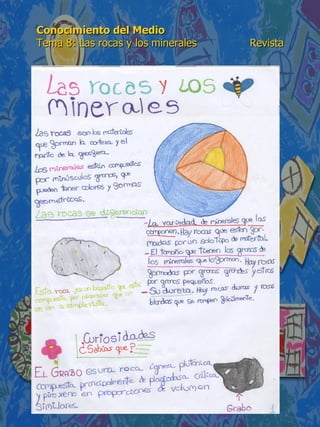 Conocimiento del Medio
Tema 8: Las rocas y los minerales Revista
LAS ROCAS Y LOS
MINERALES
Las rocas son los materiales
que forman la corteza y el
manto de la geosfera.
Los minerales están compuestos
por minúsculos granos, que
pueden tener colores y formas
geometrícas.
Las rocas se diferencian
-La variedad de minerales que las
componen. Hay rocas que están for-
madas por un solo tipo de material.
-El tamaño que tienen los granos de
los minerales que lo forman. Hay rocas
formadas por granos grandes y otras
por granos pequeños.
-Su dureza. Hay rocas duras y rocas
blandas que se rompen fácilmente.
Esta roca es un basalto que está
compuesta por minerales que no
se ven a simple vista.
Curiosidades
¿Sabías que?
EL GRABO es una roca ígnea plutónica
compuesta principalmente de plagioclasa cálcica
y piroxeno en proporciones de volumen
similares.
Grabo